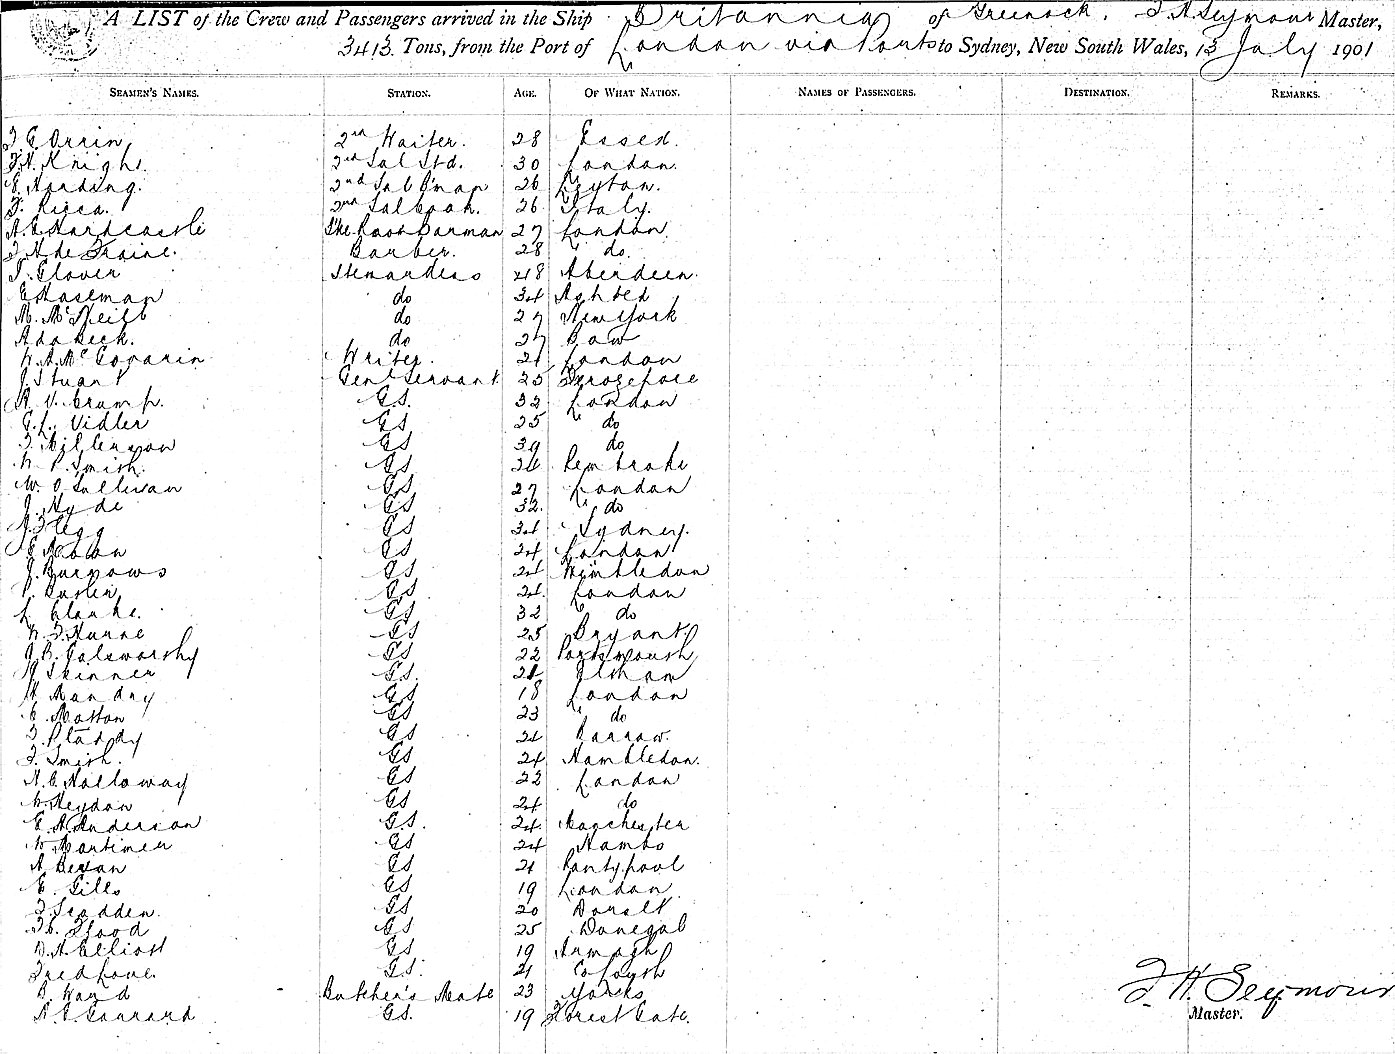 A LIST of the Crew and Passengers arrived in the Ship Britannia of Greenock, F. H. Seymour Master,
3413 Tons, from the Port of London via Ports to Sydney, New South Wales, 13 July 1901
SEAMEN'S NAMES. STATION. AGE. OF WHAT NATION. NAMES OF PASSENGERS. DESTINATION. REMARKS.
Orrin 2nd Waiter. 28 Essex.
Knight. 2nd Sal Std. 30 London.
E. Harding. 2nd Sal P'man 26 Leyton.
F. Ricca. 2nd Sal Cook. 26 Italy.
A. E. Hardcastle Barman 27 London
Barber. 28 do.
Glover Stewardess 48 Aberdeen.
E. Haseman do 34
M. McNeill do 27 New York
Ada Keck. do 27 Bow
Writer. 21 London
J. Stuart Genl Servant 25 Ferozepore
R. V. Crump. G.S. 32 London
G. L. Vidler GS 25 do
GS 39 do
Smith. GS 21 Pembroke
W. O'Sullivan GS 27 London
J. Hyde GS 32. do
J. F. Legg GS 31 Sydney.
GS 24 London
J. Burrows GS 21 Wimbledon
GS 21. London
L. Clarke. GS 32 do
GS 25 Bryant.
J. B. Galsworthy GS 22 Portsmouth
Skinner GS. 21
H. Mandry GS 18 London
GS 23 do
GS 21 Barrow.
F. Smith. GS 24 Hambledon.
H. C. Holloway GS 22 London
Heydon GS 24 do
E. A. Anderson G.S. 24. Manchester
W. Mortimer GS 24 Hants
A. Bevan GS 21 Pontypool
E. Gills GS 19 London
GS 20
Flood GS 25 Donegal
Elliott GS 19 Armagh
Fred Lowe. G.S. 21
B. Ward Butcher's Mate 23 Yorks
Garrard GS. 19 Forest Gate.
F. H. Seymour
Master.